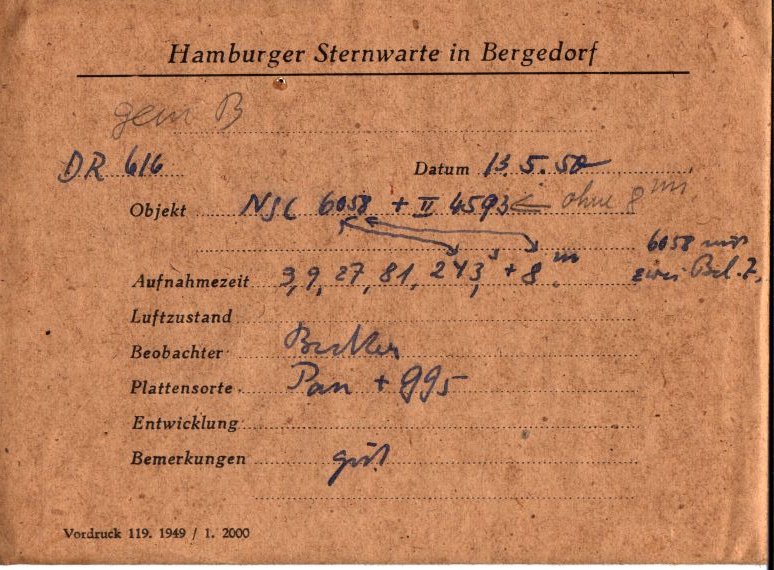 Hamburger Sternwarte in Bergedorf
gem B
DR 616
Datum 13.5.50
Objekt NGC 6058 + II 4593 ← ohne 8 m
6058 mit
Aufnahmezeit 3, 9, 27, 81, 243 s + 8 m
zwei Bel. Z.
Luftzustand
Beobachter
Plattensorte Pan + GG5
Entwicklung
Bemerkungen gut
Vordruck 119. 1949 / 1. 2000